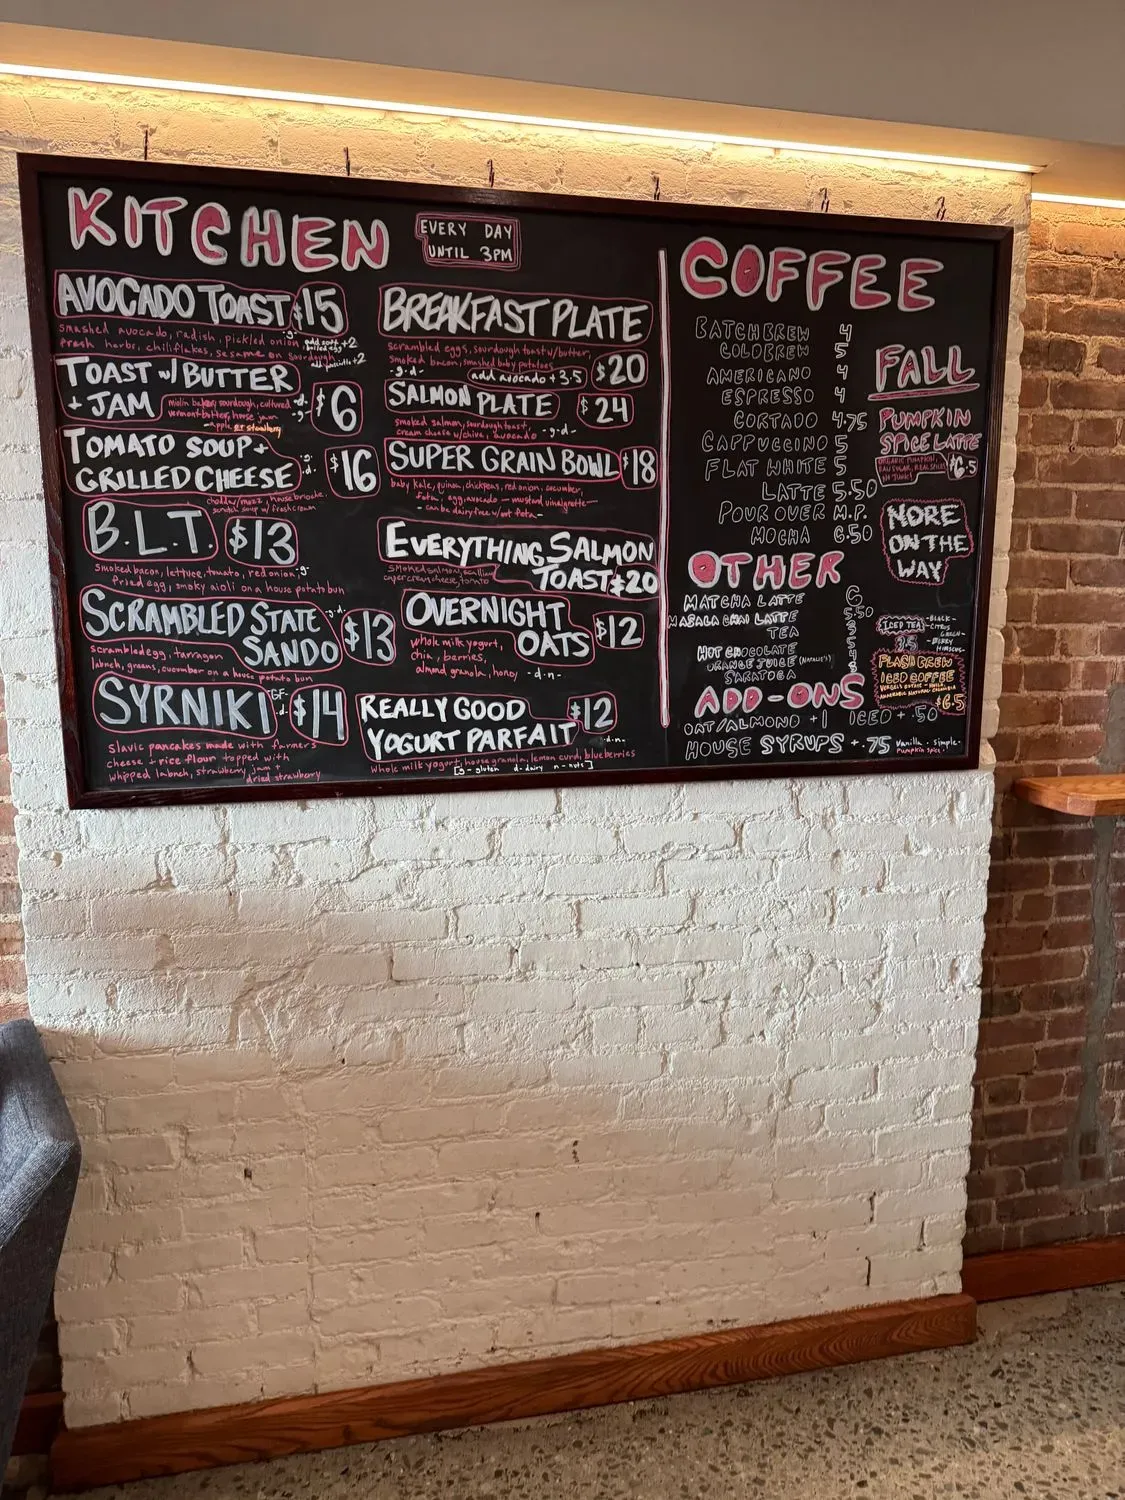 KITCHEN
EVERY DAY
UNTIL 3PM
AVOCADO TOAST $15
smashed avocado, radish, pickled onion -g-
fresh herbs, chili flakes, sesame on sourdough
add soft boiled egg +2
TOAST w/ BUTTER
+ JAM $6
sourdough, cultured -d-
vermont butter, house jam -g-
-apple or strawberry
TOMATO SOUP +
GRILLED CHEESE $16
cheddar/mozz, house brioche
tomato soup w/ fresh cream
B.L.T. $13
smoked bacon, lettuce, tomato, red onion, -g-
fried egg, smoky aioli on a house potato bun
SCRAMBLED STATE -g-d-
SANDO $13
scrambled egg, tarragon
labneh, greens, cucumber on a house potato bun
SYRNIKI GF -d- $14
slavic pancakes made with farmers
cheese + rice flour topped with
whipped labneh, strawberry jam +
dried strawberry
BREAKFAST PLATE
scrambled eggs, sourdough toast w/ butter,
smoked bacon, smashed baby potatoes
-g-d- add avocado +3.5 $20
SALMON PLATE $24
smoked salmon, sourdough toast,
cream cheese w/ chive, avocado -g-d-
SUPER GRAIN BOWL $18
baby kale, quinoa, chickpeas, red onion, cucumber,
feta, egg, avocado — mustard vinaigrette—
- can be dairy free w/out feta -
EVERYTHING SALMON
TOAST $20
smoked salmon, scallion
caper cream cheese, tomato
OVERNIGHT
OATS $12
whole milk yogurt,
chia, berries,
almond granola, honey -d-n-
REALLY GOOD $12
YOGURT PARFAIT -d-n-
whole milk yogurt, house granola, lemon curd, blueberries
[g - gluten d - dairy n - nuts]
COFFEE
BATCH BREW 4
COLD BREW 5
AMERICANO 4
ESPRESSO 4
CORTADO 4.75
CAPPUCCINO 5
FLAT WHITE 5
LATTE 5.50
POUR OVER M.P.
MOCHA 6.50
FALL
PUMPKIN
SPICE LATTE
ORGANIC PUMPKIN,
REAL SPICES
NO JUNK! $6.5
MORE
ON THE
WAY
OTHER
MATCHA LATTE 6
MASALA CHAI LATTE 5.50
TEA
HOT CHOCOLATE
ORANGE JUICE (NATALIE'S)
SARATOGA
ICED TEA -BLACK-
-CITRUS GREEN-
-BERRY HIBISCUS-
FLASH BREW
ICED COFFEE
NATURAL COLOMBIA
$6.5
ADD-ONS
OAT/ALMOND +1 ICED +.50
HOUSE SYRUPS +.75 vanilla · simple ·
pumpkin spice